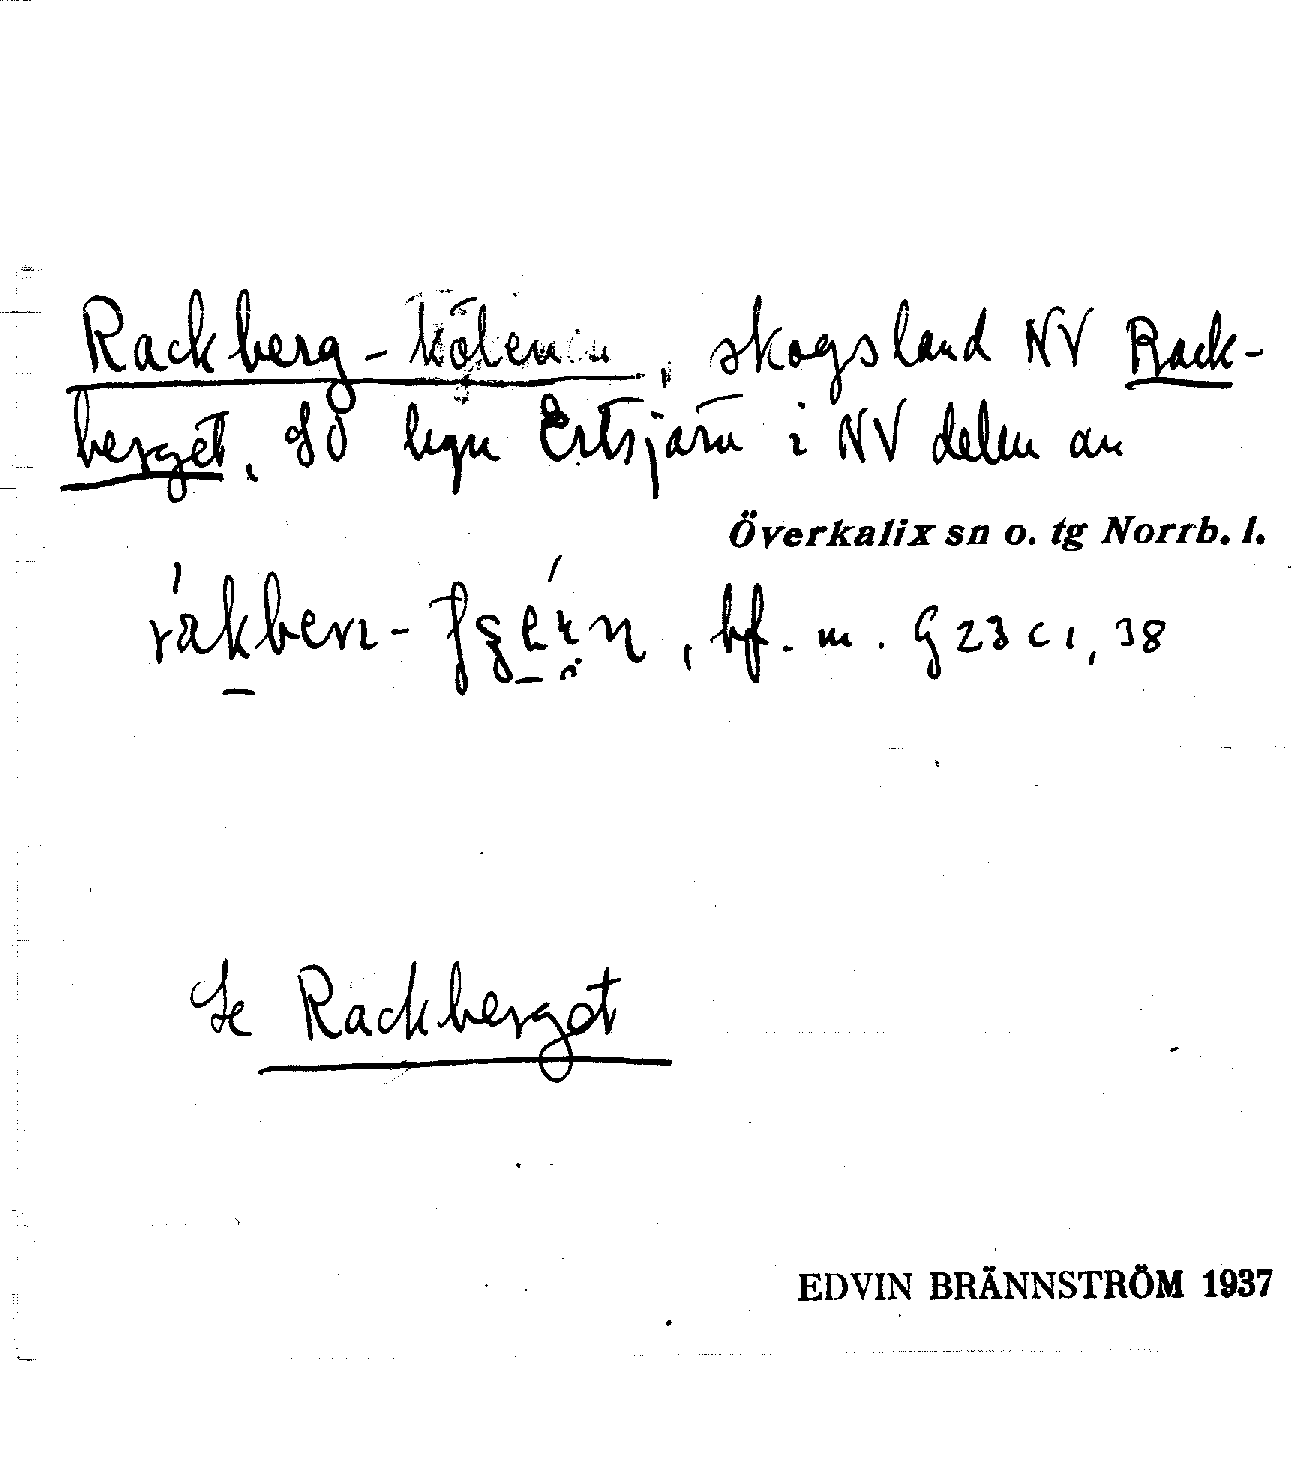 Rackberg-kölen, skogsland NV Rack-
berget, SO lign Ertsjärn i NV delen av
Överkalix sn o. tg Norrb. l.
bf. m. G 23 c 1, 38
Se Rackberget
EDVIN BRÄNNSTRÖM 1937